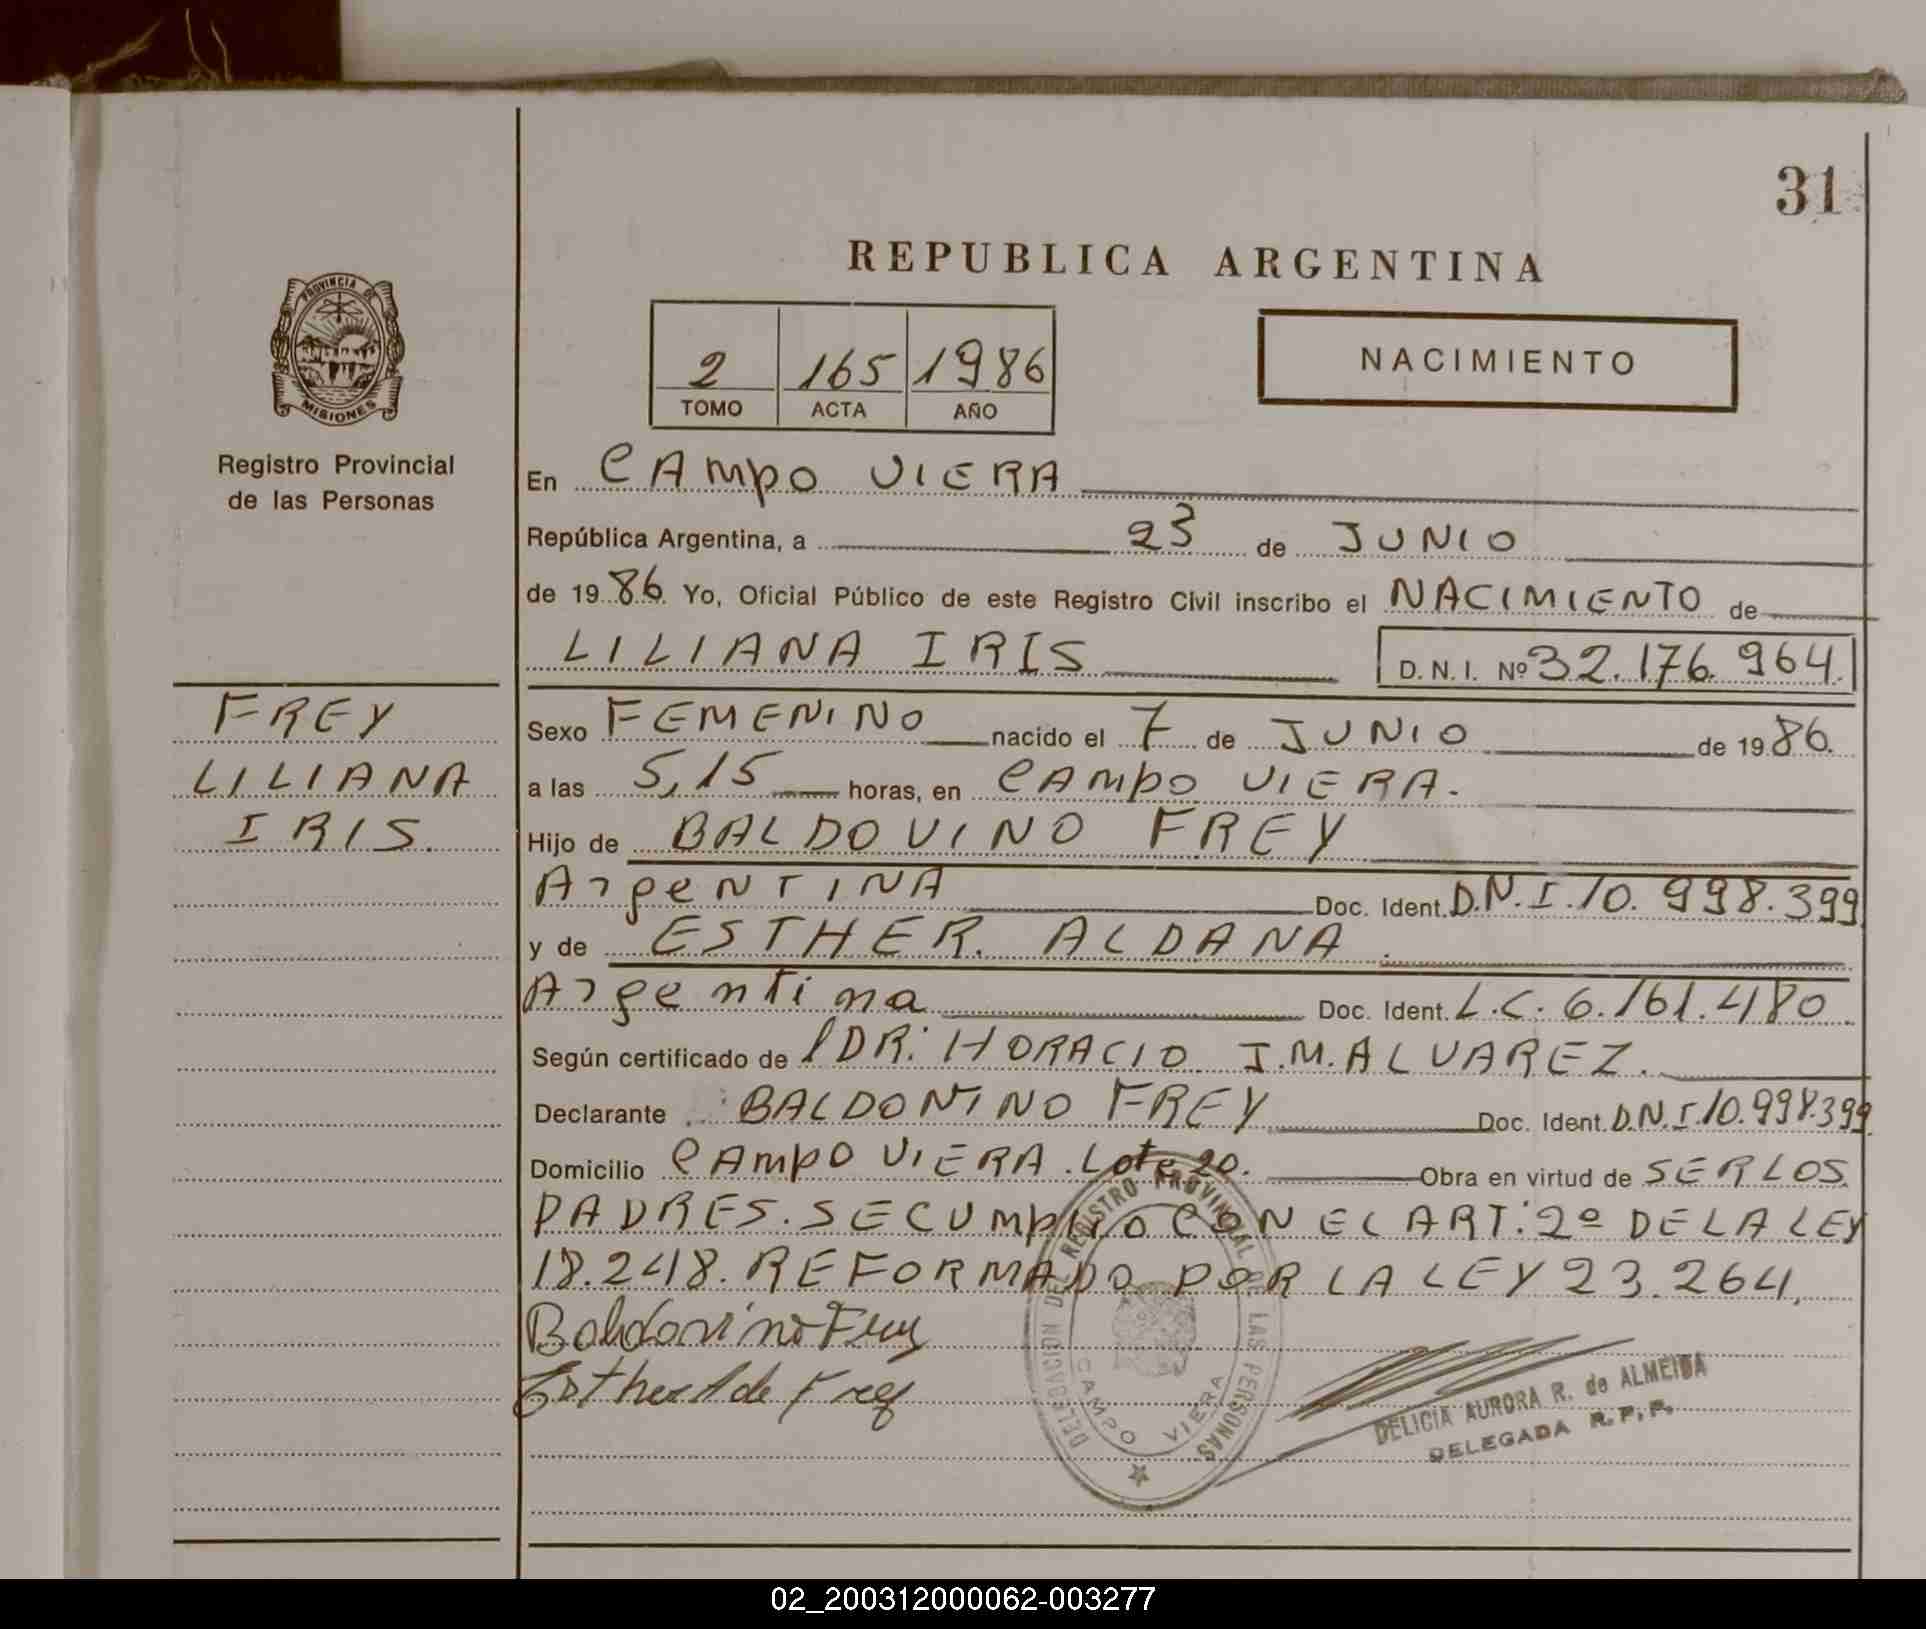 31
REPUBLICA ARGENTINA
PROVINCIA DE
MISIONES
Registro Provincial
de las Personas
2 165 1986
TOMO ACTA AÑO
NACIMIENTO
En CAMPO VIERA
República Argentina, a 23 de JUNIO
de 1986 Yo, Oficial Público de este Registro Civil inscribo el NACIMIENTO de
LILIANA IRIS D.N.I. Nº 32.176.964.
FREY
LILIANA
IRIS.
Sexo FEMENINO nacido el 7 de JUNIO de 1986.
a las 5,15 horas, en CAMPO VIERA.
Hijo de BALDOVINO FREY
ArgeNTINA Doc. Ident. D.N.I. 10.998.399
y de ESTHER. ALDANA.
Argentina Doc. Ident. L.C. 6.161.480.
Según certificado de DR: HORACIO J.M. ALVAREZ.
Declarante BALDOVINO FREY Doc. Ident. D.N.I. 10.998.399
Domicilio CAMPO VIERA. Lote 20. Obra en virtud de SER LOS
PADRES. SE CUMPLIO CON EL ART: 2º DE LA LEY
18.248. REFORMADO POR LA LEY 23.264.
Baldovino Frey
Esther A de Frey
DELEGACION DEL REGISTRO PROVINCIAL DE LAS PERSONAS
CAMPO VIERA
DELICIA AURORA R. de ALMEIDA
DELEGADA R.P.P.
02_200312000062-003277